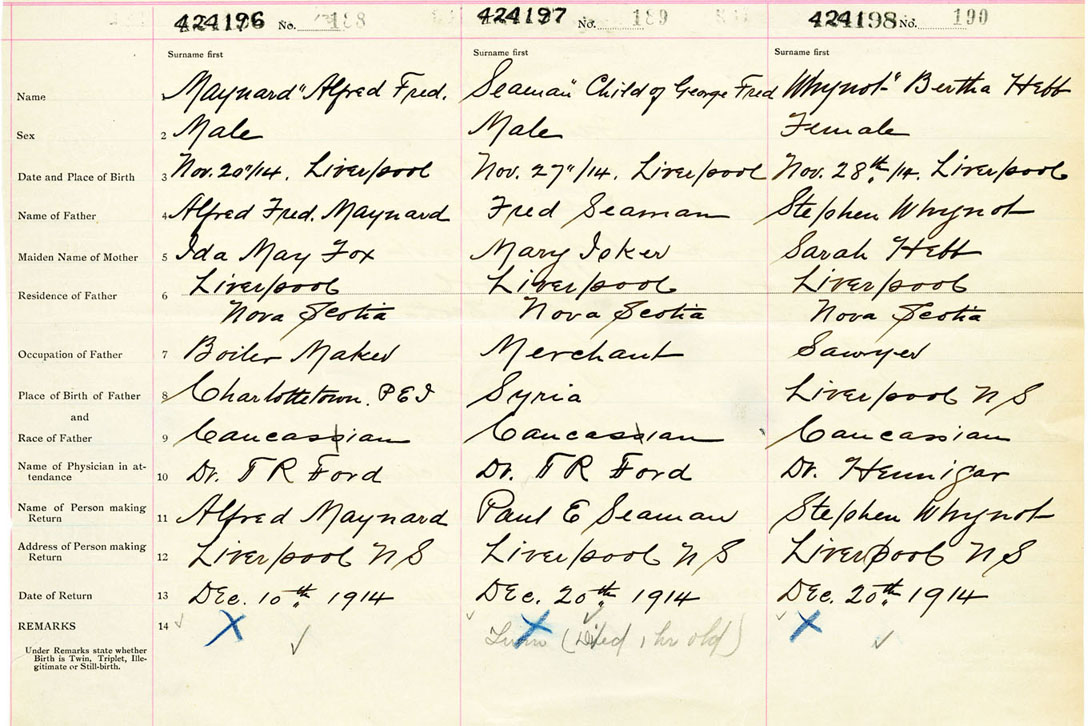 424196 No. 188 424197 No. 189 424198 No. 190
Surname first Surname first Surname first
Name Maynard" Alfred Fred. Seaman" Child of George Fred Whynot" Bertha Hebb
Sex 2 Male Male Female
Date and Place of Birth 3 Nov. 20"/14. Liverpool Nov. 27"/14. Liverpool Nov. 28th/14. Liverpool
Name of Father 4 Alfred Fred. Maynard Fred Seaman Stephen Whynot
Maiden Name of Mother 5 Ida May Fox Mary Joker Sarah Hebb
Residence of Father 6 Liverpool Liverpool Liverpool
Nova Scotia Nova Scotia Nova Scotia
Occupation of Father 7 Boiler Maker Merchant Sawyer
Place of Birth of Father 8 Charlottetown. P E I Syria Liverpool N S
and
Race of Father 9 Caucassian Caucassian Caucassian
Name of Physician in at-
tendance 10 Dr. T R Ford Dr. T R Ford Dr. Hennigar
Name of Person making
Return 11 Alfred Maynard Paul E Seaman Stephen Whynot
Address of Person making
Return 12 Liverpool N S Liverpool N S Liverpool N S
Date of Return 13 Dec. 10th 1914 Dec. 20th 1914 Dec. 20th 1914
REMARKS 14 (Died 1 hr old)
Under Remarks state whether
Birth is Twin, Triplet, Ille-
gitimate or Still-birth.